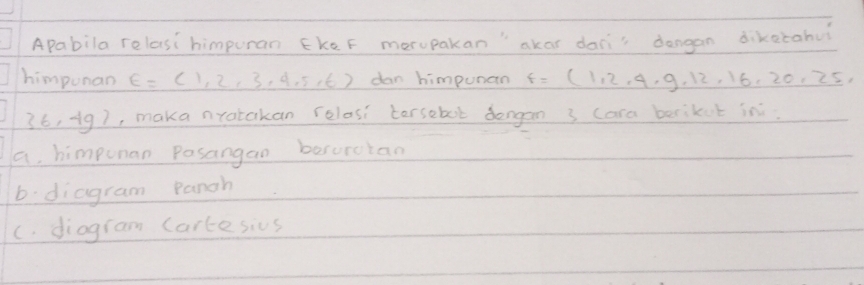 Apabila relasi himpunan E ke F merupakan "akar dari" dengan diketahui
himpunan E = {1, 2, 3, 4, 5, 6} dan himpunan F = {1, 2, 4, 9, 12, 16, 20, 25,
36, 49}, maka nyatakan relasi tersebut dengan 3 cara berikut ini:
a. himpunan Pasangan berurutan
b. diagram Panah
c. diagram Cartesius